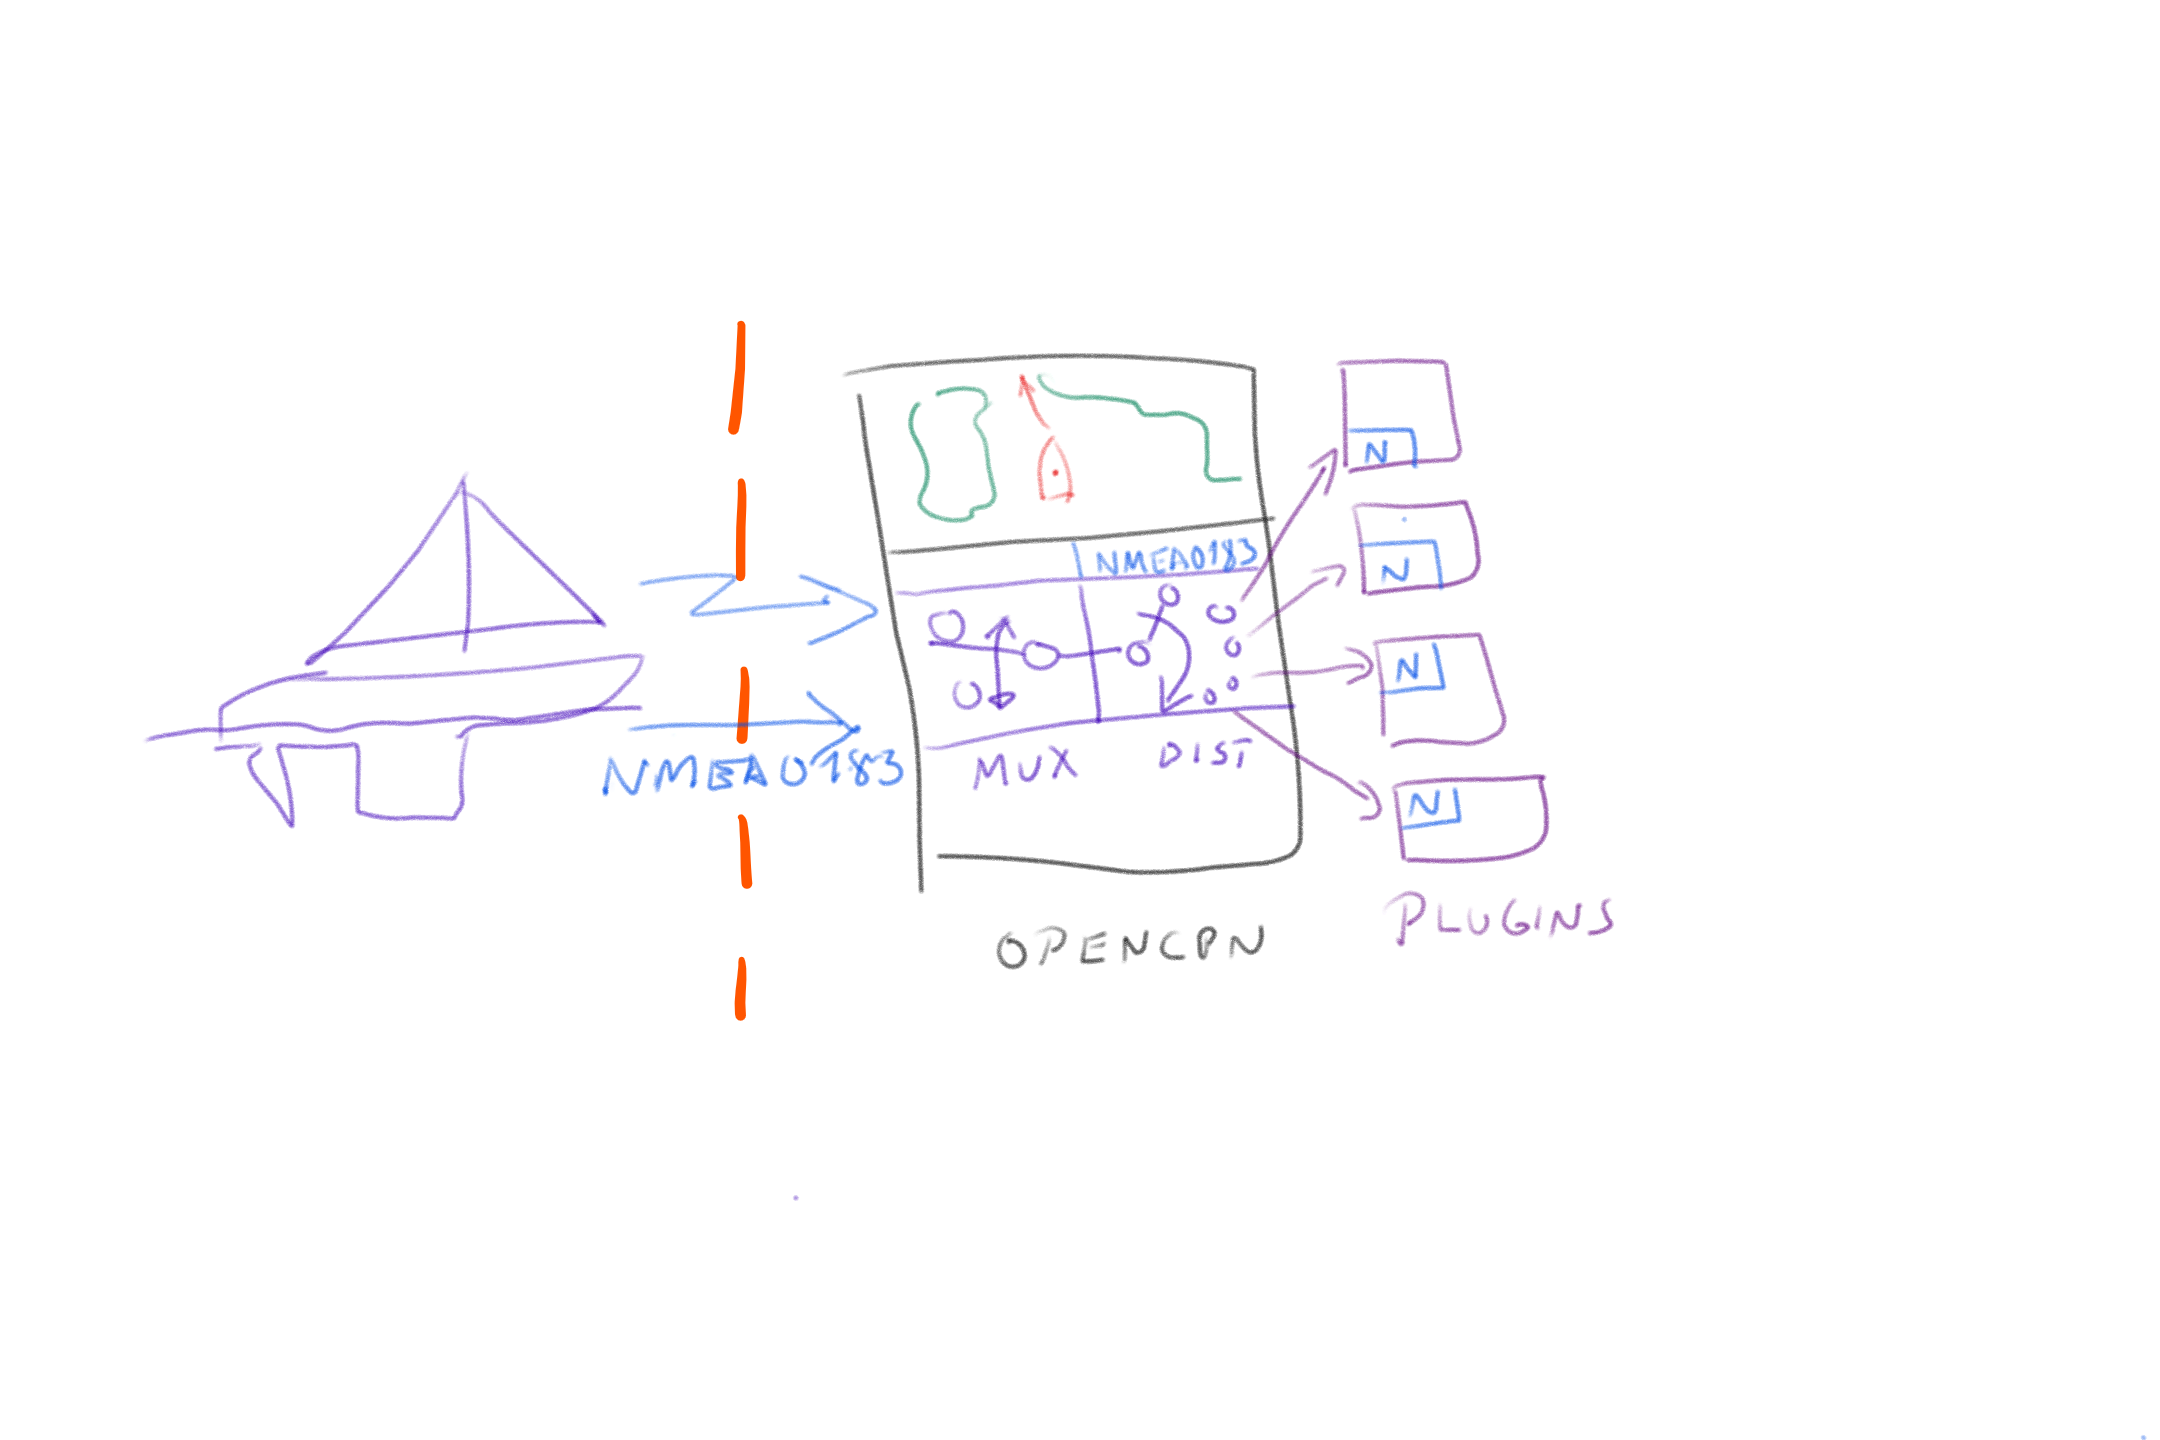 NMEA0183
NMEA0183
MUX
DIST
N
N
N
N
OPENCPN
PLUGINS